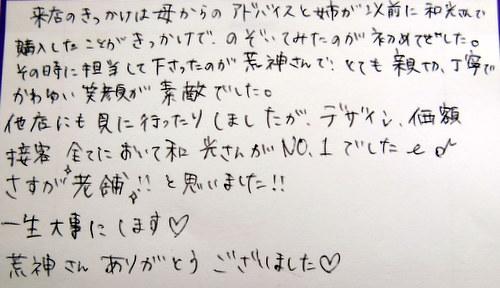 来店のきっかけは母からのアドバイスと姉が以前に和光さんで
購入したことがきっかけで、のぞいてみたのが初めてでした。
その時に担当して下さったのが荒神さんで、とても親切、丁寧で
かわゆい笑顔が素敵でした。
他店にも見に行ったりしましたが、デザイン、価額
接客 全てにおいて和光さんがNO,1でした♪
さすが老舗!!と思いました!!
一生大事にします♡
荒神さん ありがとう ございました♡